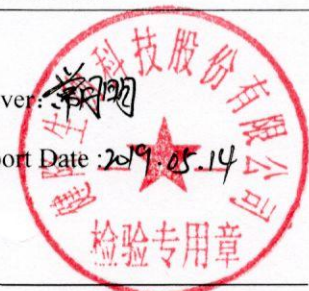 ver:
ort Date :2019.05.14
科技股份有限公司
检验专用章